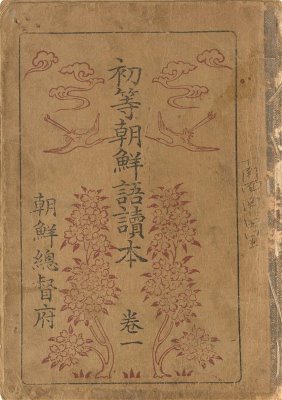 初等朝鮮語讀本
卷一
朝鮮總督府